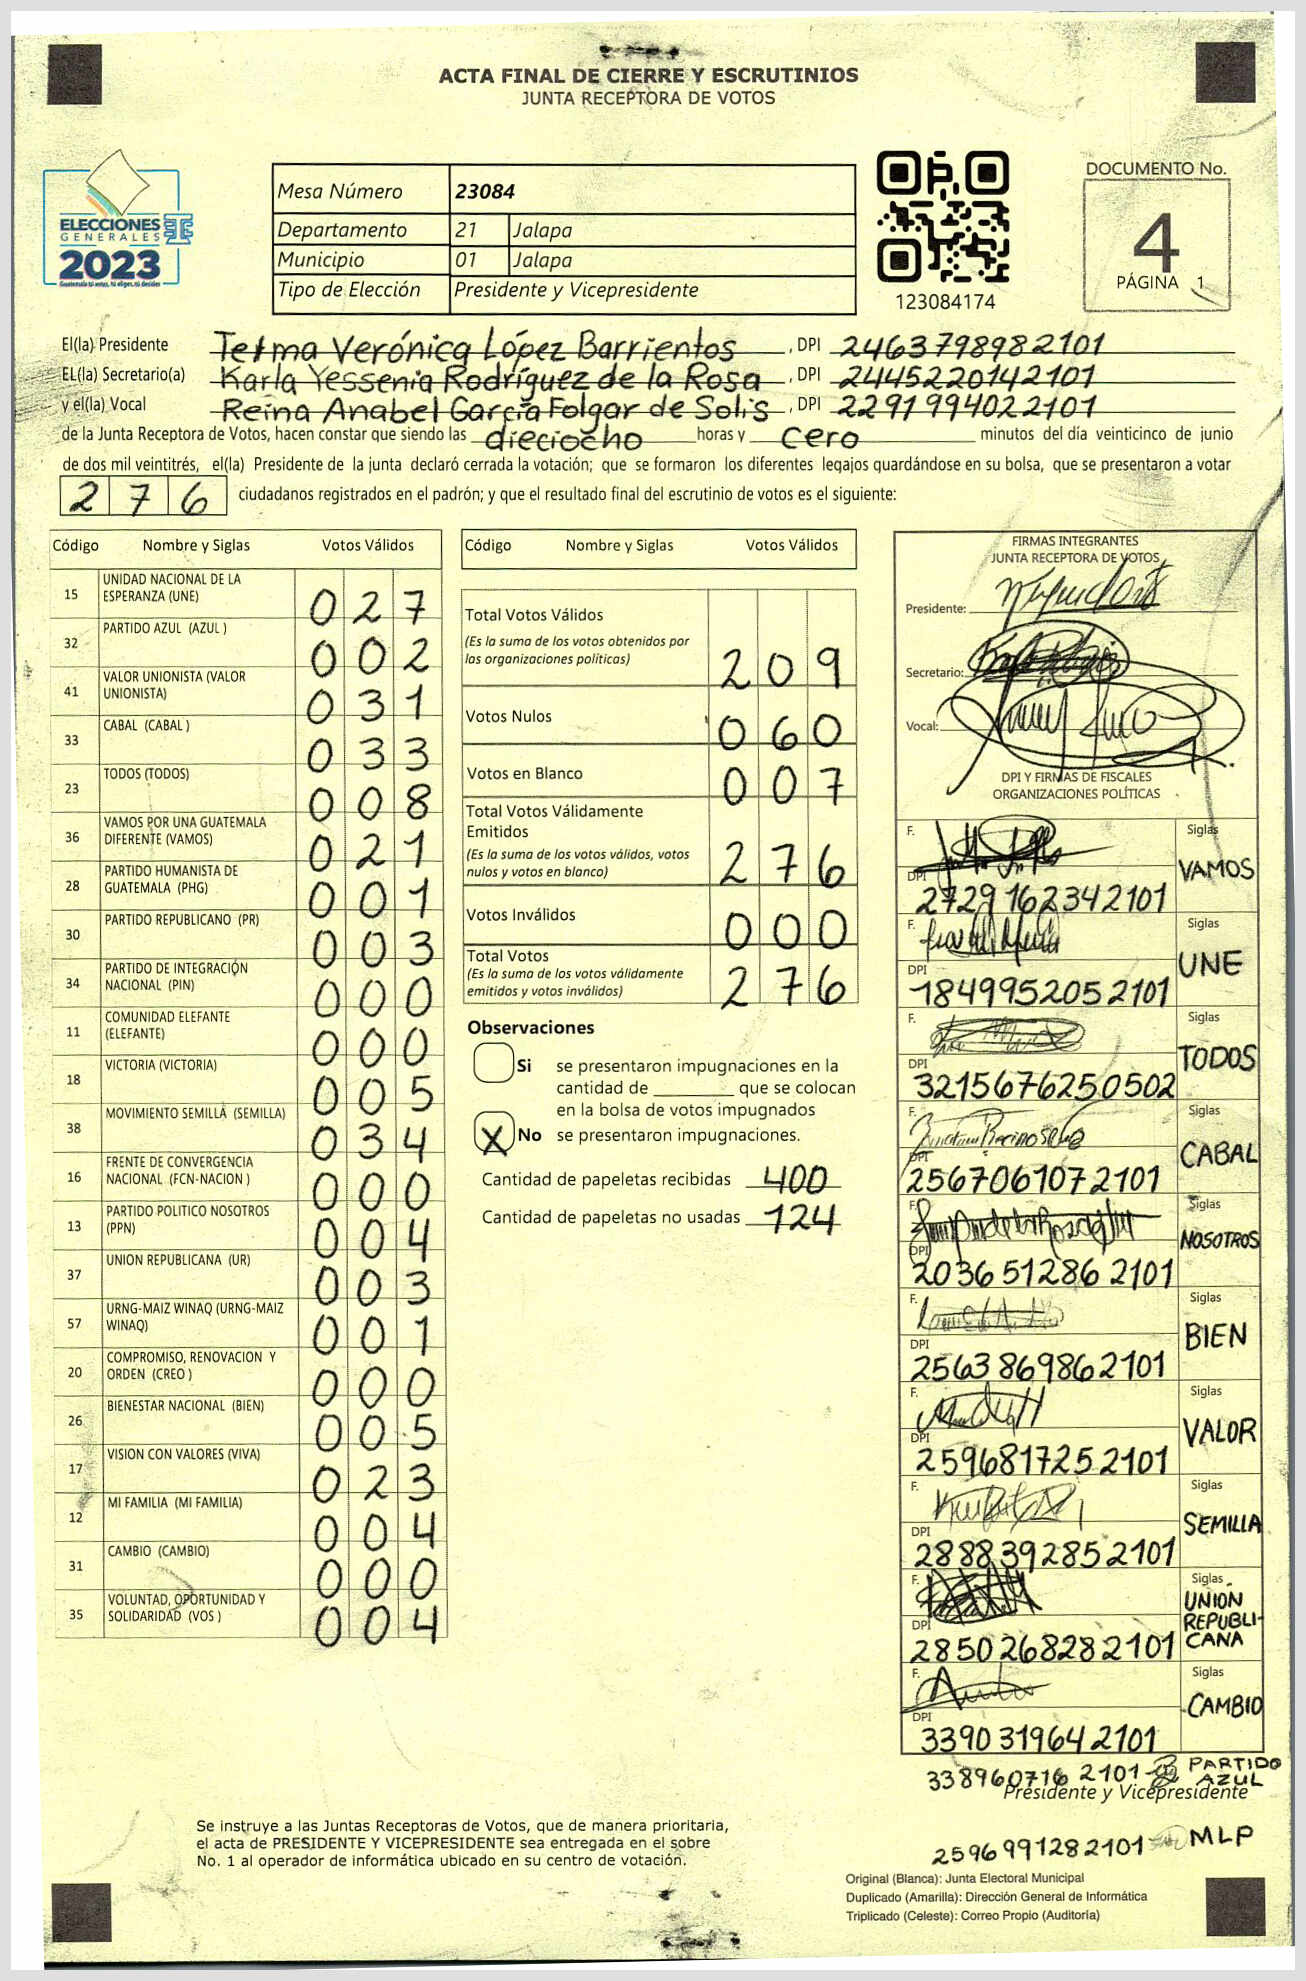 ACTA FINAL DE CIERRE Y ESCRUTINIOS
JUNTA RECEPTORA DE VOTOS
ELECCIONES
GENERALES
2023
Guatemala tú votas, tú eliges, tú decides
Mesa Número 23084
Departamento 21 Jalapa
Municipio 01 Jalapa
Tipo de Elección Presidente y Vicepresidente
123084174
DOCUMENTO No.
4
PÁGINA 1
El(la) Presidente Telma Verónica López Barrientos , DPI 2463798982101
EL(la) Secretario(a) Karla Yessenia Rodríguez de la Rosa , DPI 2445220142101
y el(la) Vocal Reina Anabel García Folgar de Solis , DPI 2291994022101
de la Junta Receptora de Votos, hacen constar que siendo las dieciocho horas y cero minutos del día veinticinco de junio
de dos mil veintitrés, el(la) Presidente de la junta declaró cerrada la votación; que se formaron los diferentes legajos guardándose en su bolsa, que se presentaron a votar
276 ciudadanos registrados en el padrón; y que el resultado final del escrutinio de votos es el siguiente:
Código Nombre y Siglas Votos Válidos
15 UNIDAD NACIONAL DE LA
ESPERANZA (UNE) 027
32 PARTIDO AZUL (AZUL ) 002
41 VALOR UNIONISTA (VALOR
UNIONISTA) 031
33 CABAL (CABAL ) 033
23 TODOS (TODOS) 008
36 VAMOS POR UNA GUATEMALA
DIFERENTE (VAMOS) 021
28 PARTIDO HUMANISTA DE
GUATEMALA (PHG) 001
30 PARTIDO REPUBLICANO (PR) 003
34 PARTIDO DE INTEGRACIÓN
NACIONAL (PIN) 000
11 COMUNIDAD ELEFANTE
(ELEFANTE) 000
18 VICTORIA (VICTORIA) 005
38 MOVIMIENTO SEMILLA (SEMILLA) 034
16 FRENTE DE CONVERGENCIA
NACIONAL (FCN-NACION ) 000
13 PARTIDO POLITICO NOSOTROS
(PPN) 004
37 UNION REPUBLICANA (UR) 003
57 URNG-MAIZ WINAQ (URNG-MAIZ
WINAQ) 001
20 COMPROMISO, RENOVACION Y
ORDEN (CREO ) 000
26 BIENESTAR NACIONAL (BIEN) 005
17 VISION CON VALORES (VIVA) 023
12 MI FAMILIA (MI FAMILIA) 004
31 CAMBIO (CAMBIO) 000
35 VOLUNTAD, OPORTUNIDAD Y
SOLIDARIDAD (VOS ) 004
Código Nombre y Siglas Votos Válidos
Total Votos Válidos
(Es la suma de los votos obtenidos por
las organizaciones políticas) 209
Votos Nulos 060
Votos en Blanco 007
Total Votos Válidamente
Emitidos
(Es la suma de los votos válidos, votos
nulos y votos en blanco) 276
Votos Inválidos 000
Total Votos
(Es la suma de los votos válidamente
emitidos y votos inválidos) 276
Observaciones
Si se presentaron impugnaciones en la
cantidad de ________ que se colocan
en la bolsa de votos impugnados
X No se presentaron impugnaciones.
Cantidad de papeletas recibidas 400
Cantidad de papeletas no usadas 124
FIRMAS INTEGRANTES
JUNTA RECEPTORA DE VOTOS
Presidente:
Secretario:
Vocal:
DPI Y FIRMAS DE FISCALES
ORGANIZACIONES POLÍTICAS
F. Siglas
VAMOS
DPI
2729162342101
F. Siglas
UNE
DPI
1849952052101
F. Siglas
TODOS
DPI
3215676250502
F. Siglas
CABAL
DPI
2567061072101
F. Siglas
NOSOTROS
DPI
2036512862101
F. Siglas
BIEN
DPI
2563869862101
F. Siglas
VALOR
DPI
2596817252101
F. Siglas
SEMILLA
DPI
2888392852101
F. Siglas
UNION
REPUBLI-
CANA
DPI
2850268282101
F. Siglas
CAMBIO
DPI
3390319642101
338960716 2101 PARTIDO
AZUL
Presidente y Vicepresidente
2596991282101 MLP
Se instruye a las Juntas Receptoras de Votos, que de manera prioritaria,
el acta de PRESIDENTE Y VICEPRESIDENTE sea entregada en el sobre
No. 1 al operador de informática ubicado en su centro de votación.
Original (Blanca): Junta Electoral Municipal
Duplicado (Amarilla): Dirección General de Informática
Triplicado (Celeste): Correo Propio (Auditoría)